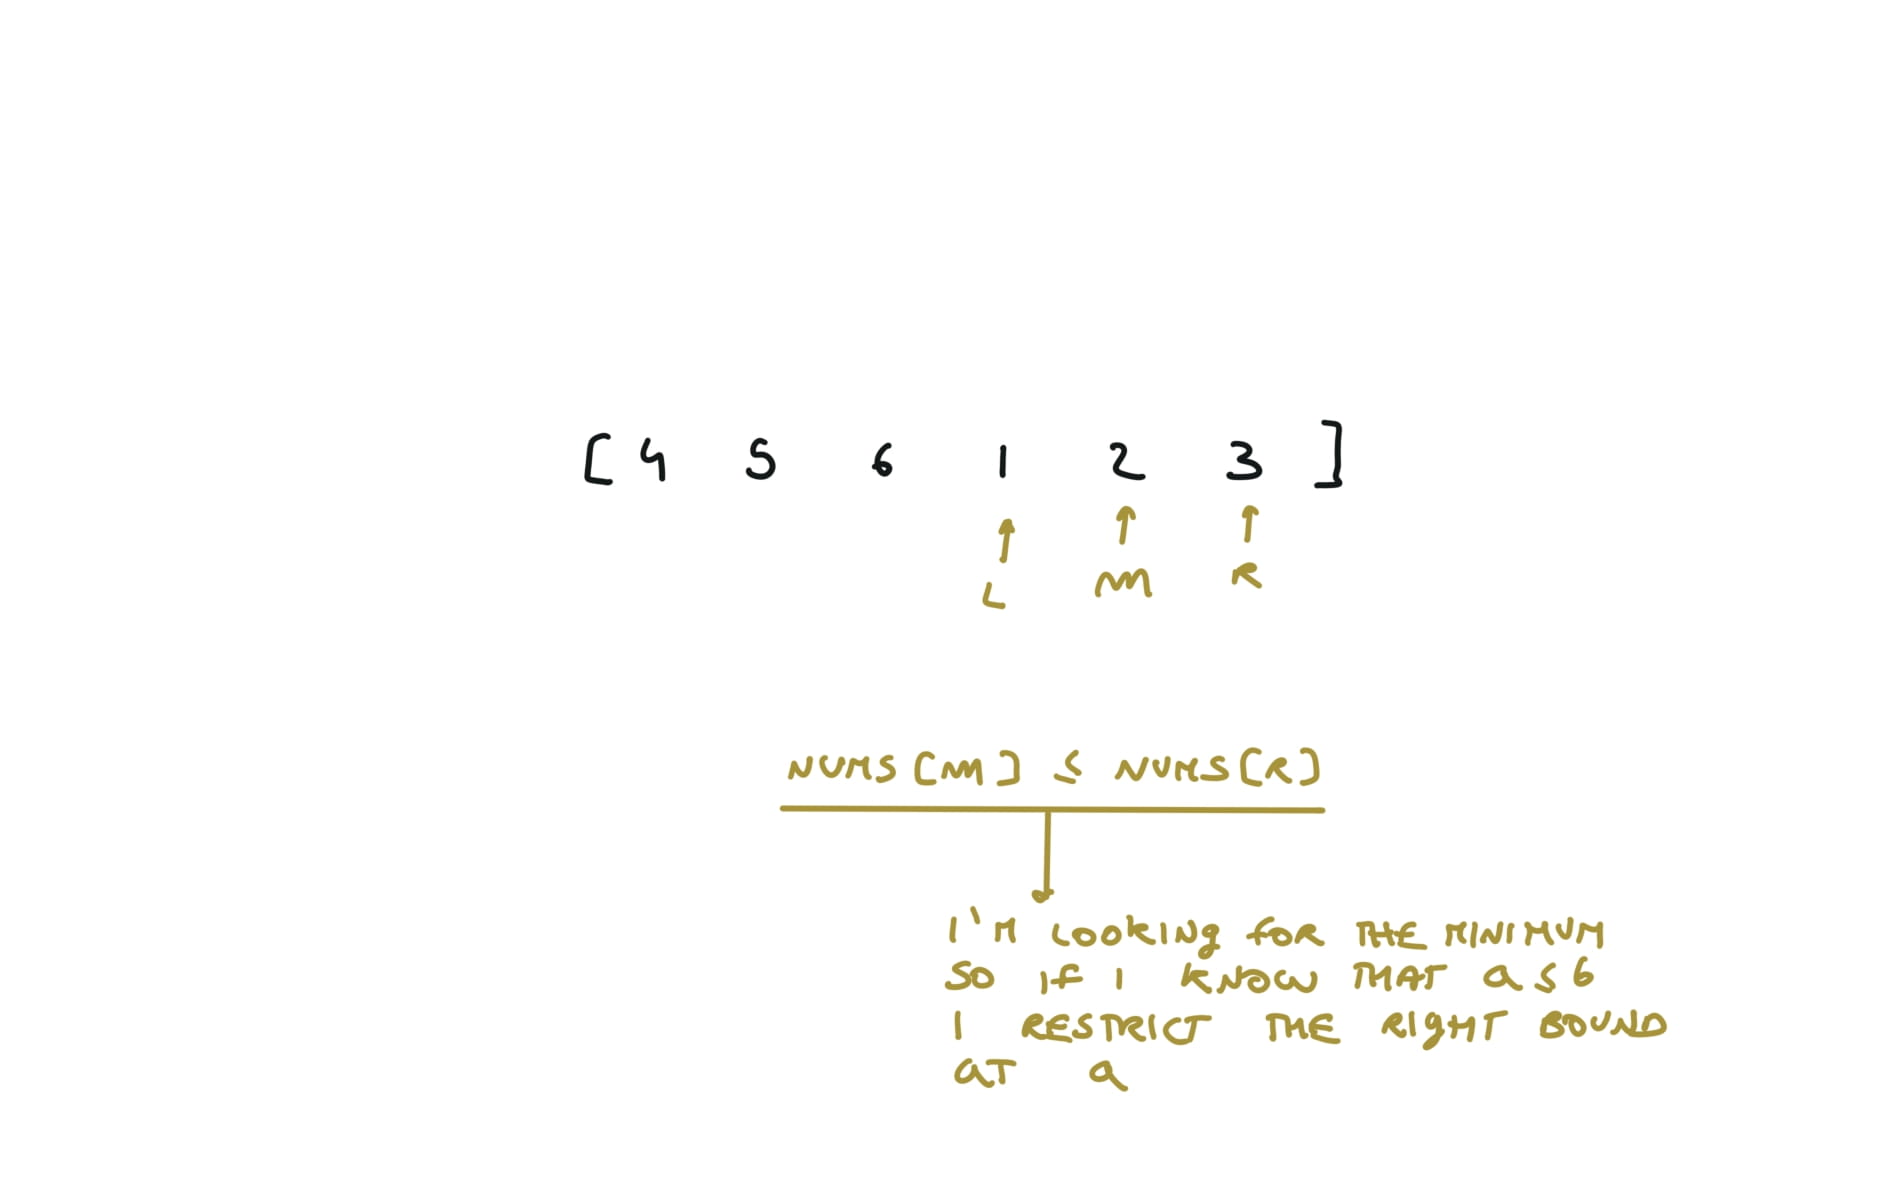 [ 4 5 6 1 2 3 ]
↑ ↑ ↑
L M R
NUMS [M] ≤ NUMS [R]
I'M LOOKING FOR THE MINIMUM
SO IF I KNOW THAT a ≤ 6
I RESTRICT THE RIGHT BOUND
AT a